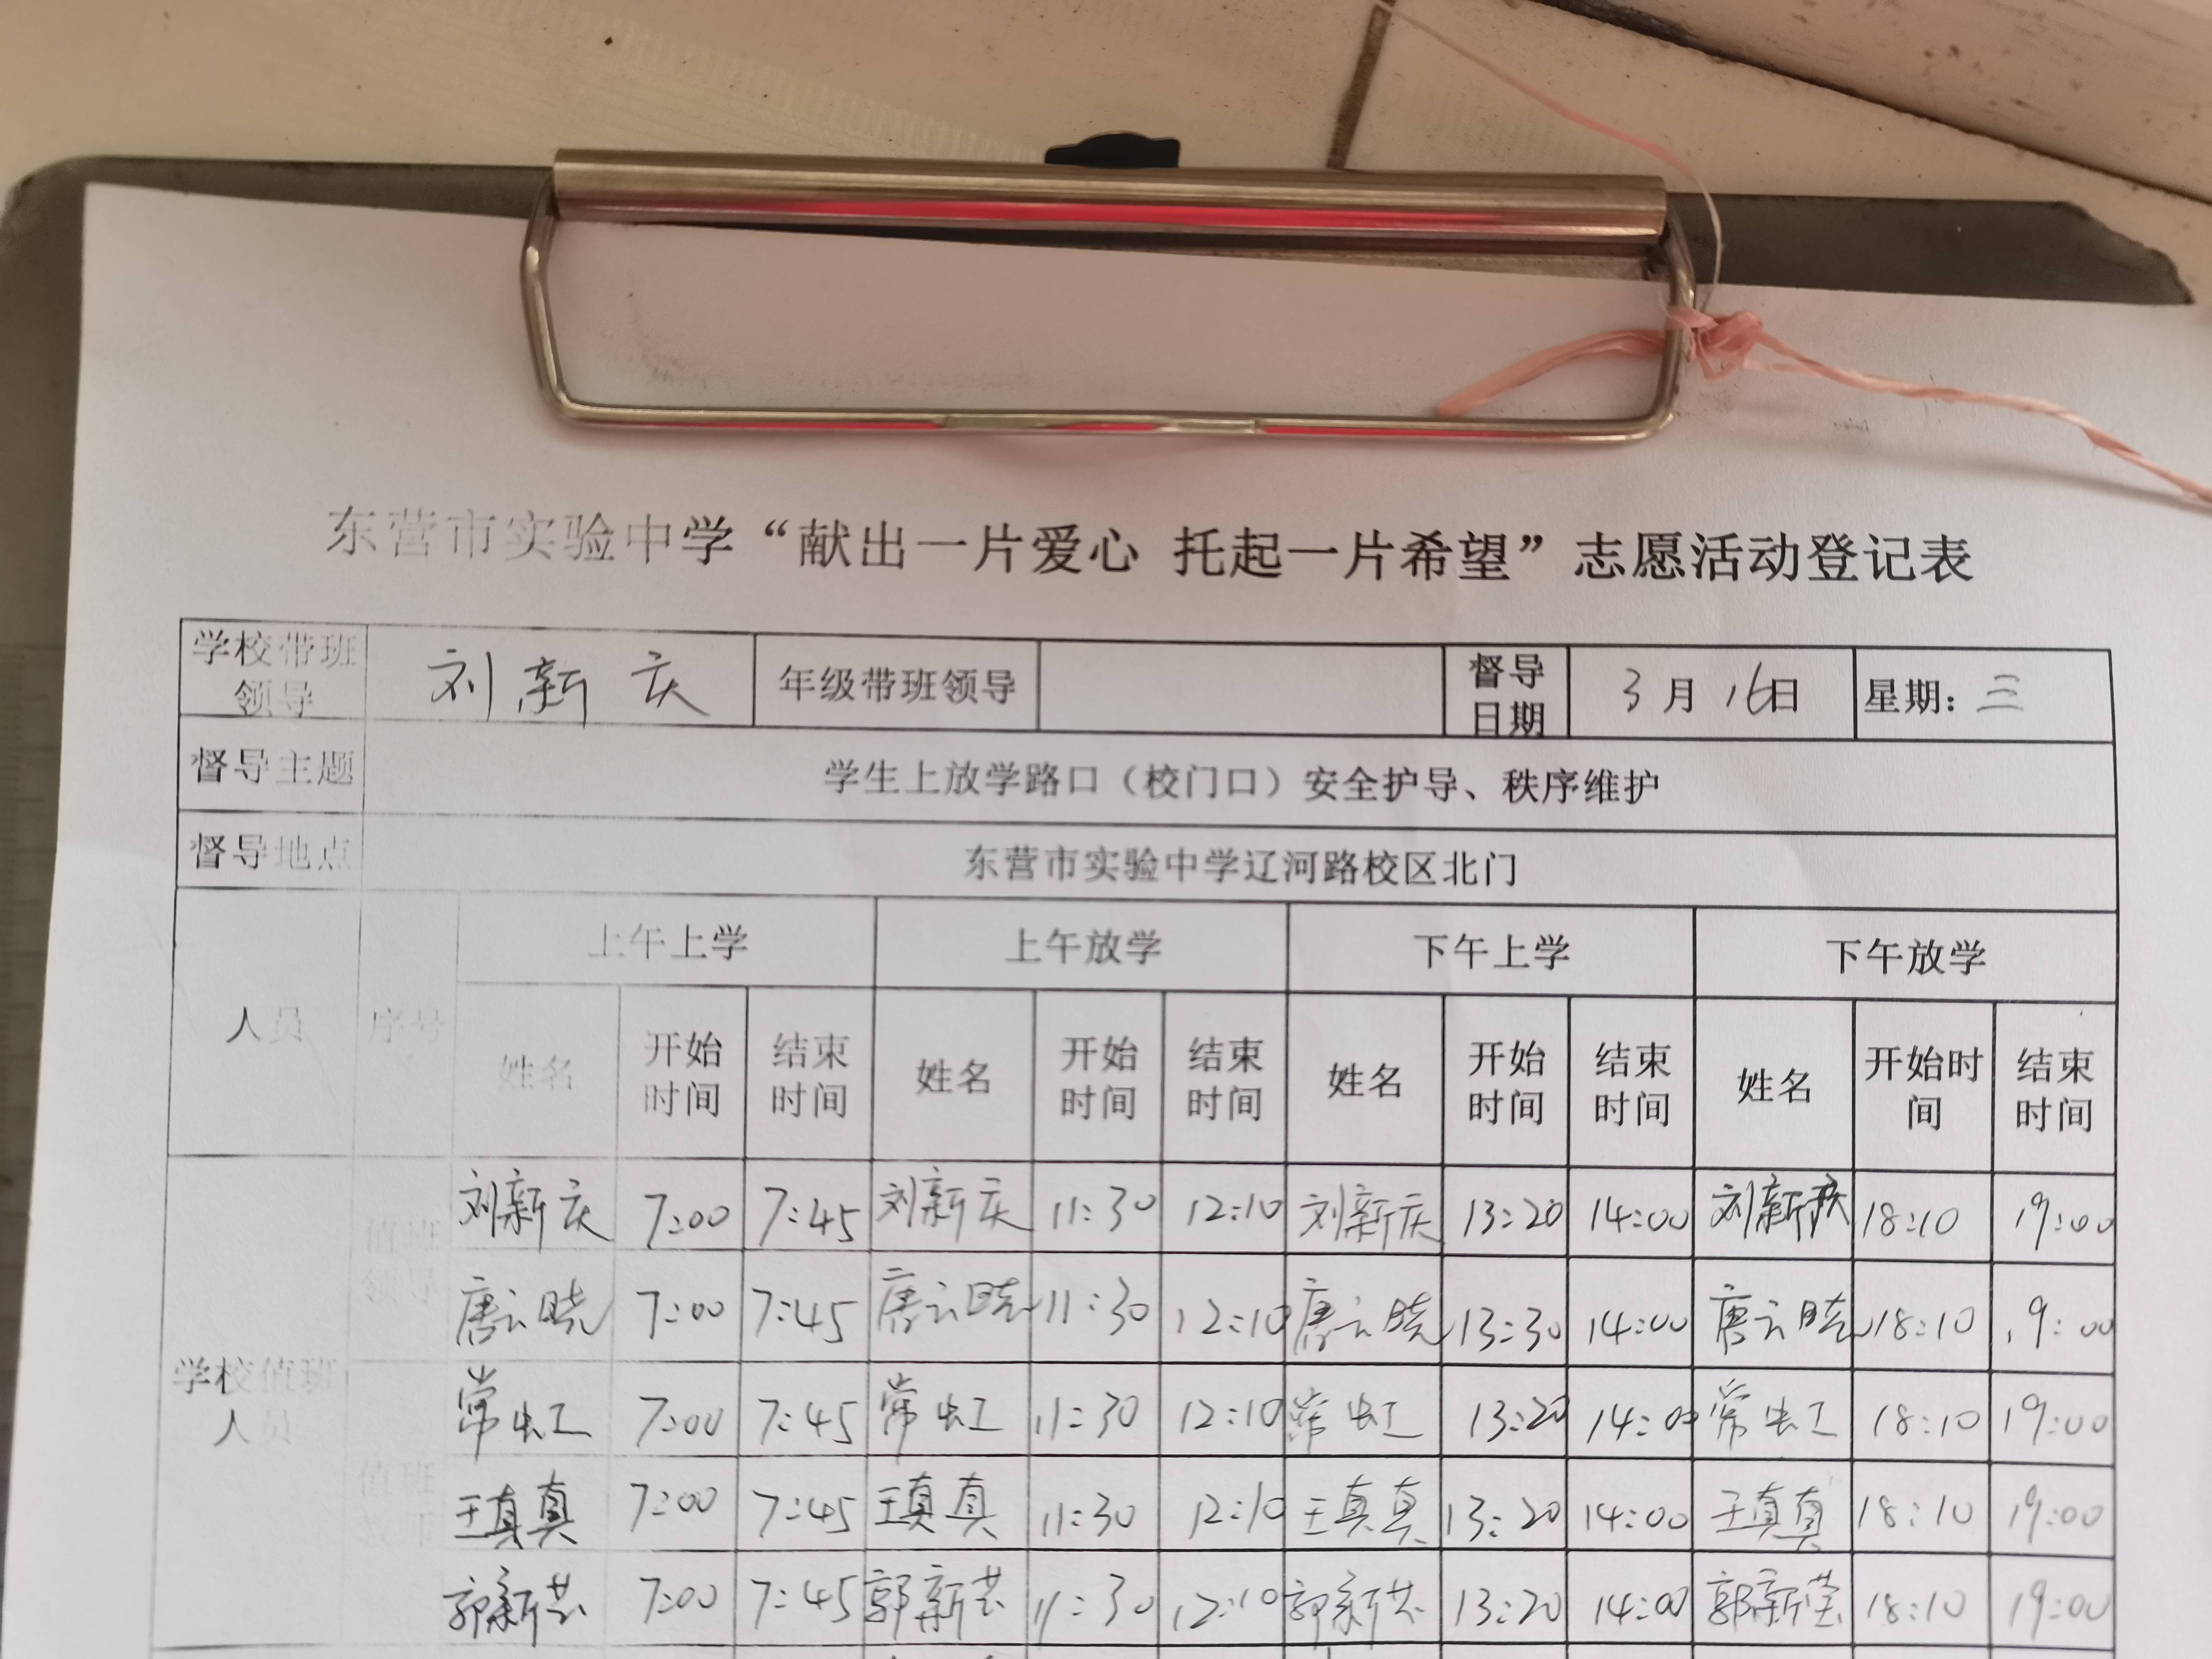 东营市实验中学“献出一片爱心 托起一片希望”志愿活动登记表
学校带班领导 刘新庆 年级带班领导 督导日期 3月16日 星期：三
督导主题 学生上放学路口（校门口）安全护导、秩序维护
督导地点 东营市实验中学辽河路校区北门
人员 序号 上午上学 上午放学 下午上学 下午放学
姓名 开始时间 结束时间 姓名 开始时间 结束时间 姓名 开始时间 结束时间 姓名 开始时间 结束时间
学校值班人员
值班领导
刘新庆 7:00 7:45 刘新庆 11:30 12:10 刘新庆 13:20 14:00 刘新庆 18:10 19:00
唐云晓 7:00 7:45 唐云晓 11:30 12:10 唐云晓 13:30 14:00 唐云晓 18:10 19:00
值班教师
常虹 7:00 7:45 常虹 11:30 12:10 常虹 13:20 14:00 常虹 18:10 19:00
王真真 7:00 7:45 王真真 11:30 12:10 王真真 13:20 14:00 王真真 18:10 19:00
郭新 7:00 7:45 郭新 11:30 12:10 郭新 13:20 14:00 郭新 18:10 19:00